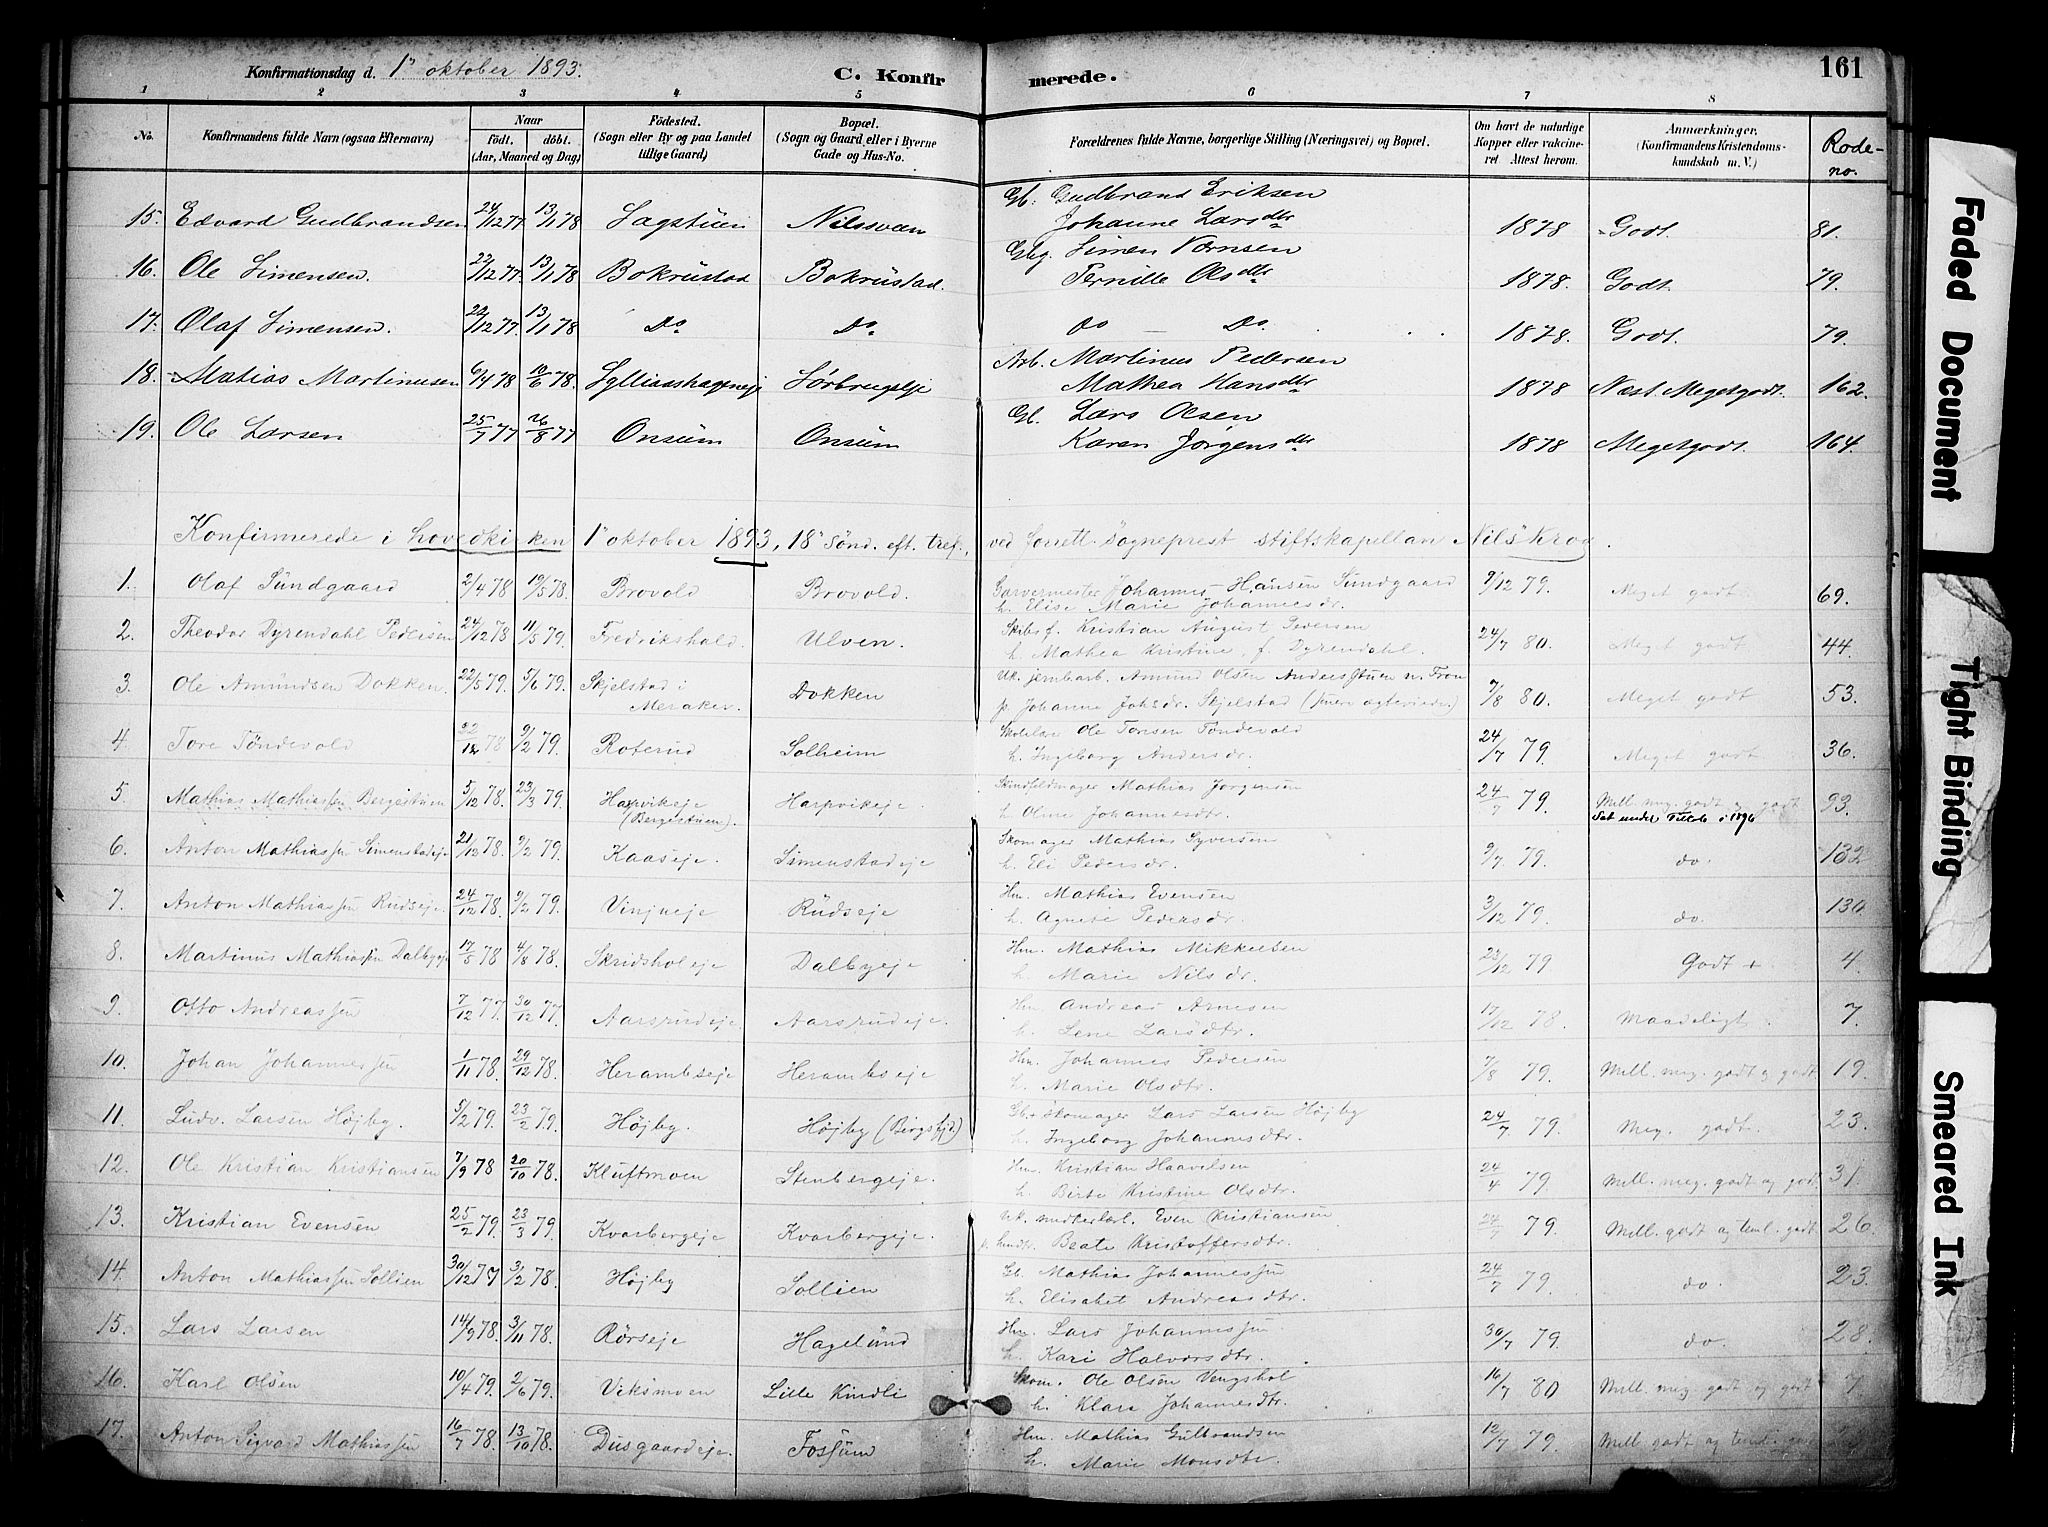 Konfirmationsdag d. 1ⁿ oktober 1893.
C. Konfirmerede.
161
1 2 3 4 5 6 7 8
No.
Konfirmandens fulde Navn (ogsaa Efternavn)
Naar født. døbt. (Aar, Maaned og Dag)
Fødested. (Sogn eller By og paa Landet tillige Gaard)
Bopæl. (Sogn og Gaard, eller i Byerne Gade og Hus-No.
Forældrenes fulde Navne, borgerlige Stilling (Næringsvei) og Bopæl.
Om havt de naturlige Kopper eller vaccineret Attest herom.
Anmærkninger. (Konfirmandens Kristendomskundskab m. V.)
Rode-no.
15. Edvard Gudbrandsen 24/12 77. 13/1 78 Sagstuen Nilssveen Gb. Gudbrand Eriksen
Johanne Larsdtr 1878 Godt. 81.
16. Ole Simensen. 22/12 77. 13/1 78 Bokrustad Bokrustad. Gbg. Simen
Pernille Olsdtr 1878. Godt. 79.
17. Olaf Simensen. 22/12 77. 13/1 78 Do Do do — Do. 1878. Godt. 79.
18. Matias Martinusen 6/4 78 10/6 78. Sørbrugseje Arb. Martinus Pedersen
Mathea Hansdtr 1878 Næst. Megetgodt. 162.
19. Ole Larsen 25/7 77 26/8 77 Onsum Onsum. Gb. Lars Olsen
Karen Jørgensdtr 1878 Megetgodt. 164.
Konfirmerede i hovedkirken 1ⁿ oktober 1893, 18ⁿ sønd. eft. tref., ved forrett. sogneprest stiftskapellan Nils Krog.
1. Olaf Sundgaard 2/4 78 19/5 78. Brovold Brovold. Garvermester Johannes Hansen Sundgaard
h. Elise Marie Johannesdr. 9/12 79. Meget godt 69.
2. Theodor Dyrendahl Pedersen 24/12 78 11/5 79. Fredrikshald. Ulven. Skibsf. Kristian August Pedersen
h. Mathea Kristine, f. Dyrendahl. 24/7 80. Meget godt 44.
3. Ole Amundsen Dokken. 22/5 79. 5/6 79. Skjelstad i Meraker. Dokken Uk. jernbarb. Amund Olsen Andersstuen n. Fron
p. Johanne Johsdr. Skjelstad 7/8 80. Meget godt 53.
4. Tore Töndevold 12 78 9/2 79. Roterud Solheim Skolelær. Ole Toresen Töndevold
h. Ingeborg Andersdr. 24/7 79. Meget godt 36.
5. Mathias Mathiassen Bergestuen 5/12 78. 23/3 79. Harpvikeje (Bergestuen). Harpvikeje Skindfeldmager Mathias Jorgensen
h. Oline Johannesdtr. 24/7 79. Mell. meg. godt og godt 93.
Sat under i 1896
6. Anton Mathiassen Simenstadeje 21/12 78 9/2 79. Kaaseje. Simenstadeje Skomager Mathias Syversen
h. Eli Pedersdr. 9/7 79. do. 132
7. Anton Mathiassen Rudseje 24/12 78. 9/2 79. Vinjueje Rudseje Hm. Mathias Evensen
h. Agnete Pedersdr. 3/12 79 do. 130
8. Martinus Mathiassen Dalbyeje 17/5 78 4/8 78. Skridsholeje Dalbyeje Hm. Mathias Mikkelsen
h. Marie Nilsdr. 23/12 79 Godt + 4.
9. Otto Andreassen 7/12 77. 30/12 77. Aarsrudeje. Aarsrudeje. Hm Andreas Arnesen
h. Lene Larsdtr. 17/12 78. Maadeligt. 7.
10. Johan Johannessen 1/11 78. 29/12 78. Herambseje Herambseje Hm. Johannes Pedersen
h. Marie Olsdtr. 7/8 79. Mell. meg. godt og godt 19.
11. Ludv. Larsen Höjby. 5/2 79. 23/2 79. Höjby. Höjby (Bergsfjd.) Gb. + skomager Lars Larsen Höjby
h. Ingeborg Johannesdtr. 24/7 79. Meg. godt. 23.
12. Ole Kristian Kristiansen 7/9 78 20/10 78. Kluftmoen Stenbergeje. Hm. Kristian Haavelsen
h. Birte Kristine Olsdtr. 24/4 79. Mell. meg. godt og godt 31.
13. Kristian Evensen 25/2 79. 23/3 79. Kvarbergeje Kvarbergeje. Uk. Even Kristiansen
p. Beate Kristoffersdtr. 24/7 79. Mell. godt og teml. godt 26.
14. Anton Mathiassen Sollien 30/12 77 3/2 78. Höjby Sollien Gb. Mathias Johannessen
h. Elisabet Andreasdtr. 24/7 79. do. 23.
15. Lars Larsen 14/9 78. 3/11 78. Rörseje Hagelund Hm. Lars Johannessen
h. Kari Halvorsdtr. 30/7 79. do. 28.
16. Karl Olsen 10/4 79. 2/6 79. Viksmoen Lille Kindli Skom. Ole Olsen Vengshol
h. Klara Johannesdtr. 16/7 80 Mell. meg. godt og godt 7.
17. Anton Sigvard Mathiassen 16/7 78. 13/10 78. Dusgaardeje. Fossum Hm. Mathias Gulbrandsen
h. Marie Monsdtr. 12/7 79. Mell. godt og
Faded Document
Tight Binding
Smeared Ink